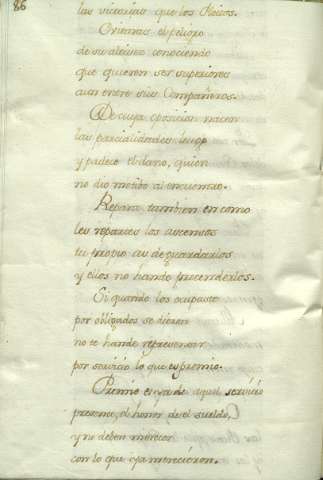 86
las vicarias que los Reinos.
Ortemas el peligro
de su alvise conociendo
que quieren ser superiores
aun entre sus Compañeros.
De cuya oposicion nacen
las parcialidades luego
y padece el daño, quien
no dio motibo al encuentro.
Repara tambien en como
les repartes los ascensos
tu propio as de guardarlos
y ellos no hande pretenderlos.
Si quando los ocupaste
por obligados se dieron
no te hande representar
por servicio lo que es premio.
Premio es ya de aquel servicio
presente, el honor de el sueldo,
y no deben merecer
con lo que ya merecieron.